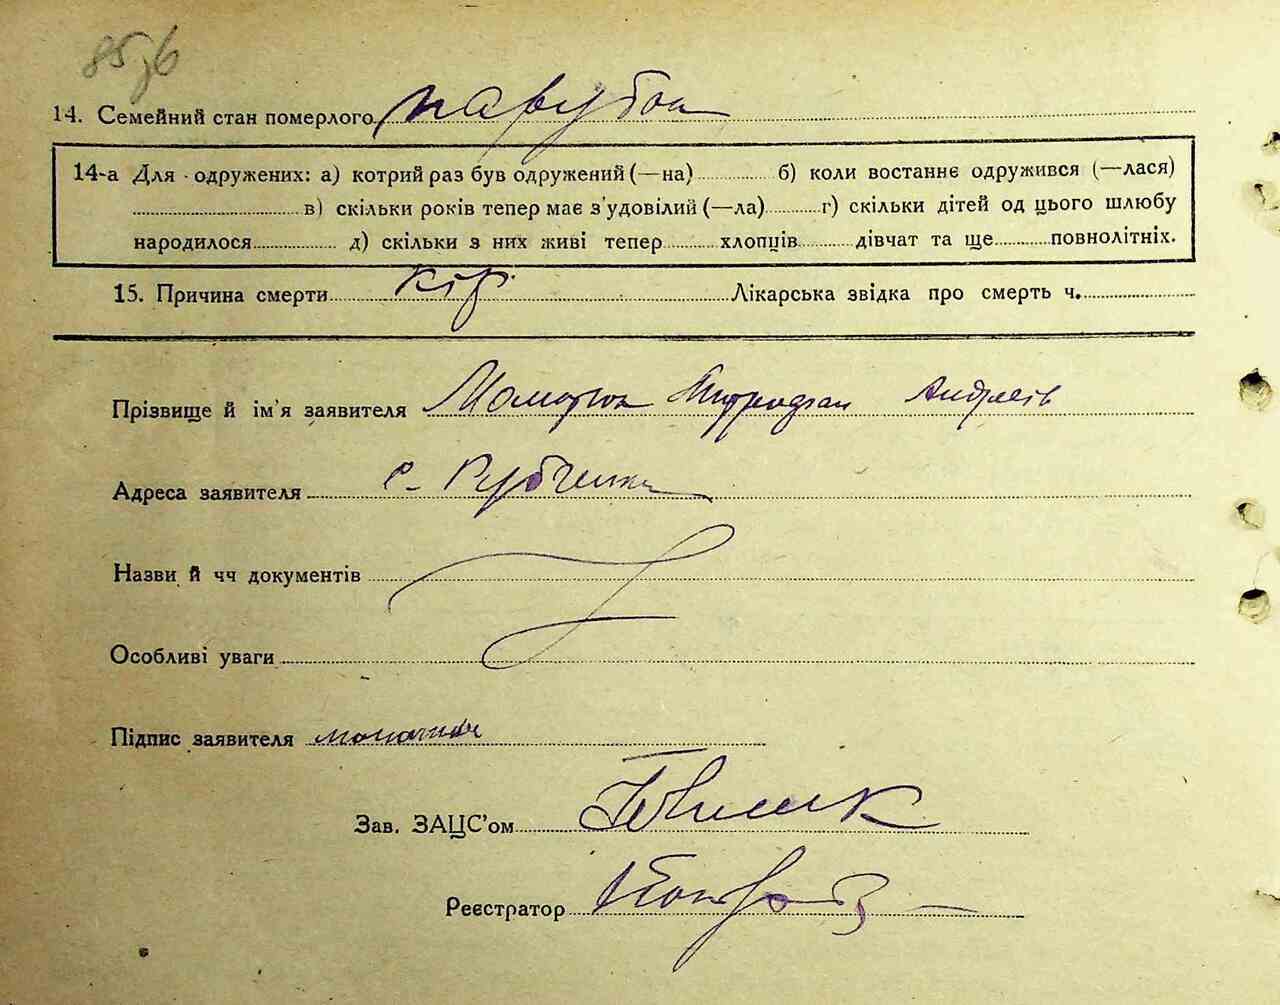 85зб
14. Семейний стан померлого парубок
14-а Для одружених: а) котрий раз був одружений (—на) б) коли востаннє одружився (—лася)
в) скільки років тепер має з'удовілий (—ла) г) скільки дітей од цього шлюбу
народилося д) скільки з них живі тепер хлопців дівчат та ще повнолітніх.
15. Причина смерти кір Лікарська звідка про смерть ч.
Прізвище й ім'я заявителя Момотюк Митрофан Андреів
Адреса заявителя с. Рубченки
Назви й чч документів
Особливі уваги
Підпис заявителя
Зав. ЗАЦС'ом
Реєстратор